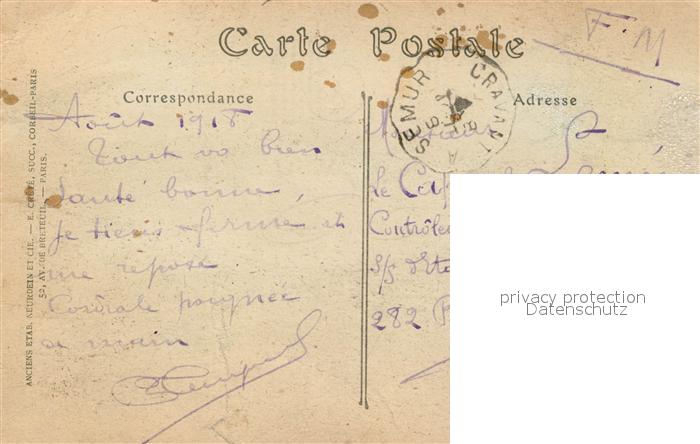 Carte Postale
F. M
Correspondance
Adresse
SEMUR CRAVANT A
Août 1918
Tout va bien
Santé bonne,
Je tiens ferme, et
me repose
Cordiale poignée
de main
Monsieur
Le
Contrôle
S/P
282
ANCIENS ETAB. NEURDEIN ET CIE. — E. CRÉTÉ, SUCC., CORBEIL-PARIS
52, AV. DE BRETEUIL. — PARIS.
privacy protection
Datenschutz